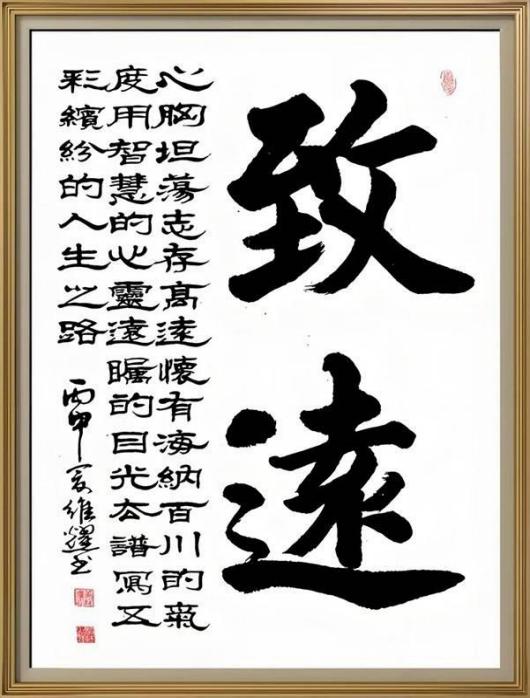 致遠
心胸坦蕩志存高遠懷有海納百川的氣
度用智慧的心靈遠矚的目光去譜寫五
彩繽紛的人生之路
丙申 維 书